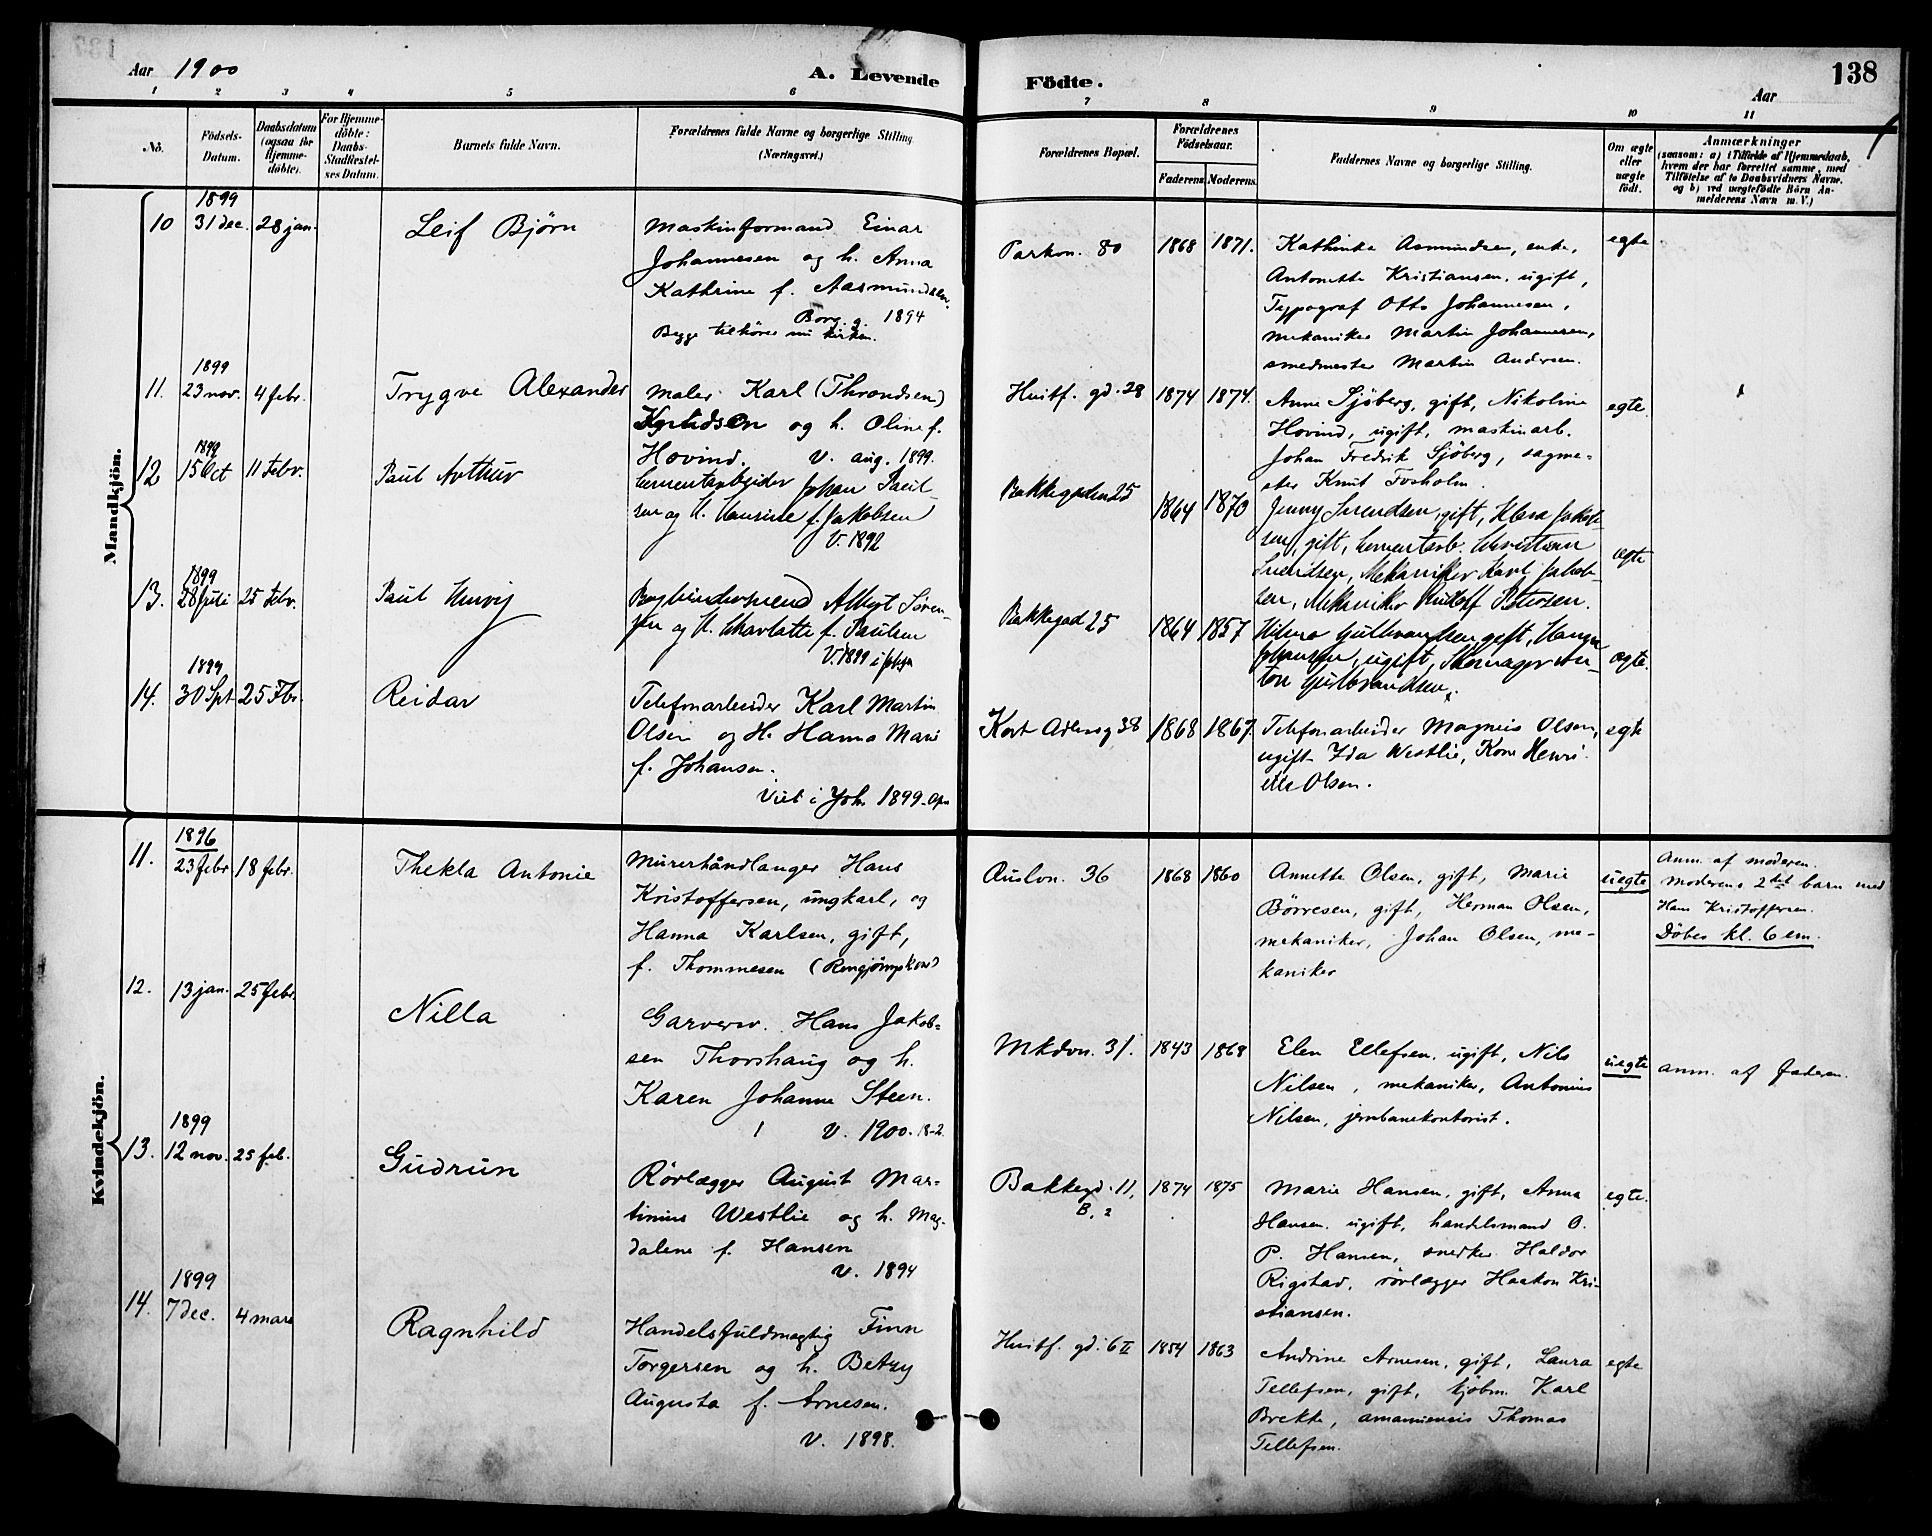 Aar 1900
A. Levende
Födte.
138
Aar
1 2 3 4 5 6
7 8 9 10 11
No.
Födsels-
Datum.
Daabsdatum
(ogsaa for
Hjemme-
döbte).
For Hjemme-
döbte:
Daabs-
Stadfæstel-
ses Datum.
Barnets fulde Navn.
Forældrenes fulde Navne og borgerlige Stilling
(Næringsvei.)
Forældrenes Bopæl.
Forældrenes
Födselsaar.
Faderens. Moderens.
Faddernes Navne og borgerlige Stilling.
Om ægte
eller
uægte
födt.
Anmærkninger
(saasom: a) i Tilfælde af Hjemmedaab,
hvem der har forrettet samme, med
Tilföielse af to Daabsvidners Navne.
og b) ved uægtefödte Börn An-
melderens Navn m. V.)
Mandkjön.
1899
10 31 dec. 28 jan. Leif Bjørn
Maskinformand Einar
Johannesen og h. Anna
Kathrine f. Aasmundsen.
Borg. g. 1894
Begge tilhører nu kirken.
Parkvn. 80 1868 1871.
Kathinka Asmundsen, enke,
Antonette Kristiansen, ugift,
Typograf Otto Johannesen,
mekaniker Martin Johannesen,
smedmester Martin Andersen.
egte
1899
11. 23 nov. 4 febr. Trygve Alexander
Maler Karl (Throndsen)
Knudsen og h. Oline f.
Hovind. V. aug. 1899.
Huitf. gd. 28 1874 1874.
Anna Sjöberg, gift, Nikoline
Hovind, ugift, maskinarb.
Johan Fredrik Sjöberg, sagme-
ster Knut Fosholm.
egte.
1899
12 15 Oct 11 Febr. Paul Arthur
Cementarbejder Johan Paul-
sen og H. Laurine f. Jakobsen
V. 1892
Bakkegaden 25 1864 1870
Jenny Svendsen, gift, Klara Jakob-
sen, gift, Cementarb. Christian
Svendsen, Mekaniker Karl Jakob-
sen, Mekaniker Rudolf Petersen.
ægte
1899
13. 28 Juli 25 Febr. Paul
Bogbindersvend Albert Søren-
sen og H. Charlotte f. Paulsen
V. 1899 i
Bakkegad 25 1864 1857
Hilma Gulbrandsen gift,
Johansen, ugift, Skomager An-
ton Gulbrandsen.
ægte.
1899
14. 30 Spt 25 Fbr. Reidar
Telefonarbeider Karl Martin
Olsen og H. Hanna Marie
f. Johansen.
Viet i Joh. 1899
Kort Adlersg 38 1868 1867.
Telefonarbeider Magnus Olsen,
ugift Ida Westlie, Kone Henri-
ette Olsen.
egte
Kvindekjön.
1896
11. 23 febr. 18 febr. Thekla Antonie
Murerhåndlanger Hans
Kristoffersen, ungkarl, og
Hanna Karlsen, gift,
f. Thommesen (Rengjøringskone)
Auslvn. 36 1868 1860
Annette Olsen, gift, Marie
Børresen, gift, Herman Olsen,
mekaniker, Johan Olsen, me-
kaniker
uegte
Anm. af moderen.
Moderens 2det barn med
Hans Kristoffersen.
Döbes kl. 6 em.
12. 13 jan. 25 febr. Nilla
Garversv. Hans Jakob-
sen Thorshaug og h.
Karen Johanne Steen.
V. 1900. 18-2.
Mkdvn. 31. 1843 1868
Elen Ellefsen, ugift, Nils
Nilsen, mekaniker, Antonius
Nilsen, jernbanekontorist.
uegte
anm. af faderen.
1899
13. 12 nov. 25 feb. Gudrun
Rørlægger August Mar-
tinius Westlie og h. Mag-
dalene f. Hansen
V. 1894
Bakkegd. 11,
B, 2
1874 1875
Marie Hansen, gift, Anna
Hansen, ugift, handelsmand O.
P. Hansen, snedker Haldor
Rigstad, rörlægger Haakon Kri-
stiansen.
egte.
1899
14. 7 dec. 4 mars Ragnhild
Handelsfuldmægtig Finn
Torgersen og h. Betzy
Augusta f. Arnesen.
V. 1898.
Huitf. gd. 6 II 1854 1863
Andrine Arnesen, gift, Laura
Tellefsen, gift, kjöbm. Karl
Brekke, amanuensis Thomas
Tellefsen.
egte